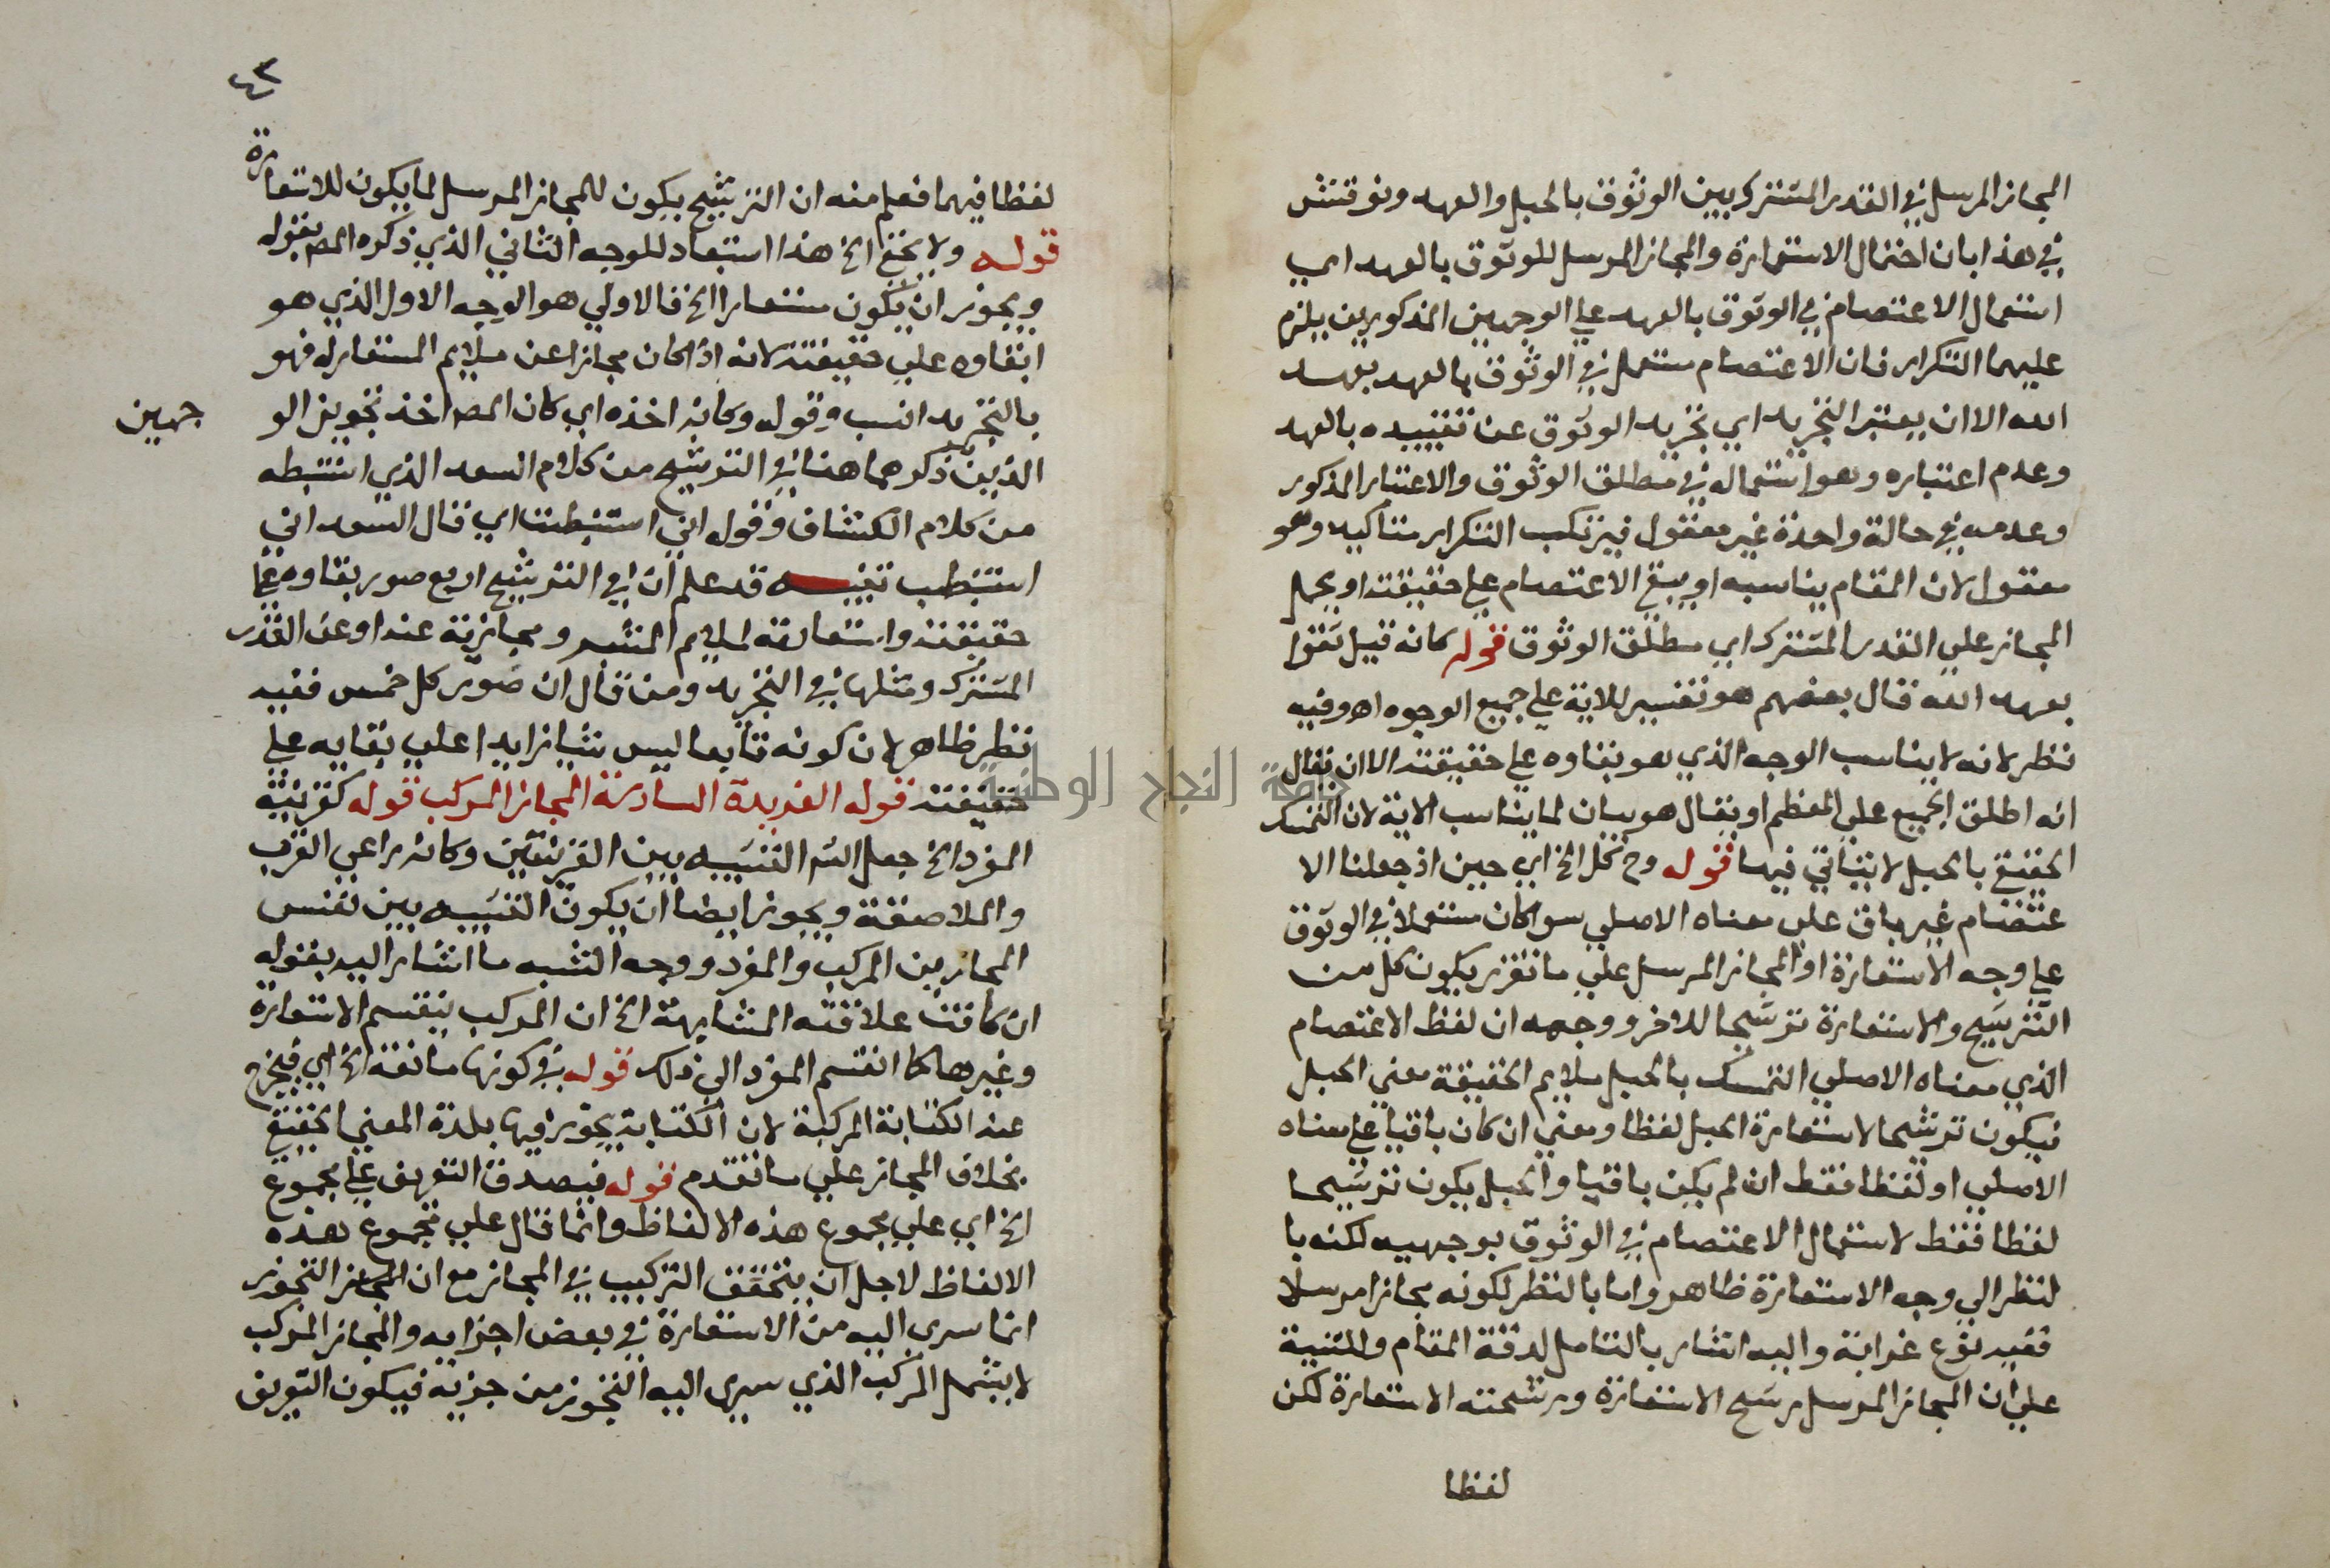 المجاز المرسل في القدر المشترك بين الوثوق بالحبل والعهد ونوقش
في هذا بان احتمال الاستعارة والمجاز المرسل للوثوق بالعهد اي
استعمال الاعتصام في الوثوق بالعهد علي الوجهين المذكورين يلزم
عليهما التكرار فان الاعتصام مستعمل في الوثوق بالعهد بعهد
الله الا ان يعتبر التجريد اي تجريد الوثوق عن تقييده بالعهد
وعدم اعتباره وهو استعماله في مطلق الوثوق والاعتبار المذكور
وعدمه في حالة واحدة غير معقول فيرتكب التكرار متاكيد وهو
معقول لان المقام يناسبه او يبقي الاعتصام علي حقيقته او يحمل
المجاز علي القدر المشترك اي مطلق الوثوق قوله كانه قيل ثقوا
بعهد الله قال بعضهم هو تفسير للاية علي جميع الوجوه اه وفيه
نظر لانه لا يناسب الوجه الذي هو بقاوه علي حقيقته الا ان يقال
انه اطلق الجميع علي المعظم او يقال هو بيان لما يناسب الاية لان التمسك
الحقيقي بالحبل لا يتاتي فيها قوله وح كل الخ اي حين اذ جعلنا الا
عتصام غير باق علي معناه الاصلي سوا كان مستعملا في الوثوق
علي وجه الاستعارة او المجاز المرسل علي ما تقرر يكون كل من
الترشيح والاستعارة ترشيحا للاخر ووجهه ان لفظ الاعتصام
الذي معناه الاصلي التمسك بالحبل ملايم الحقيقة معني الحبل
فيكون ترشيحا لاستعارة الحبل لفظا ومعني ان كان باقيا علي معناه
الاصلي او لفظا فقط ان لم يكن باقيا والحبل يكون ترشيحا
لفظا فقط لاستعمال الاعتصام في الوثوق بوجهيه لكنه با
لنظر الي وجه الاستعارة ظاهر واما بالنظر لكونه مجازا مرسلا
ففيه نوع غرابة واليه اشار بالتامل لدقة المقام والتنبيه
علي ان المجاز المرسل يرشح الاستعارة ورشحته الاستعارة لكن
لفظا
٤٣
لفظا فيهما فعلم منه ان الترشيح يكون للمجاز المرسل لما يكون للاستعارة
قوله ولا يخفي الخ هذا استبعاد للوجه الثاني الذي ذكره المص بقوله
ويجوز ان يكون مستعارا الخ فالاولي هو الوجه الاول الذي هو
ابقاوه علي حقيقته لانه اذا كان مجازا عن ملايم المستعار له فهو
بالتجريد انسب وقوله وكانه اخذه اي كان المص اخذ تجويز الو
جهين
الذين ذكرهما هنا في الترشيح من كلام السعد الذي استنبطه
من كلام الكشاف وقوله اني استنبطت اي قال السعد اني
استنبطت تنبيه قد علم ان في الترشيح اربع صور بقاوه علي
حقيقته واستعارته لملايم المشبه ومجازيته عنه او عن القدر
المشترك ومثلها في التجريد ومن قال ان صور كل خمس ففيه
نظر ظاهر لان كونه تابعا ليس شيا زايدا علي بقايه علي
حقيقته قوله الفريدة السادسة المجاز المركب قوله كقرينة
المفرد الخ جعل الشم التشبيه بين القرينتين وكانه راعي القرب
والملاصقة ويجوز ايضا ان يكون التشبيه بين نفس
المجازين المركب والمفرد ووجه الشبه ما اشار اليه بقوله
ان كانت علاقته المشابهة الخ ان المركب ينقسم الاستعارة
وغيرها كما انقسم المفرد الي ذلك قوله في كونها مانعة الخ اي فيخرج
عنه الكناية المركبة لان الكناية يجوز فيها بلدة المعني الحقيقي
بخلاف المجاز علي ما تقدم قوله فيصدق التعريف علي مجموع
الخ اي علي مجموع هذه الالفاظ وانما قال علي مجموع هذه
الالفاظ لاجل ان يتحقق التركيب في المجاز مع ان المجاز التجوز
انما سري اليه من الاستعارة في بعض اجزايه والمجاز المركب
لا يشمل المركب الذي سري اليه التجوز من جزيه فيكون التعريف
جامعة النجاح الوطنية